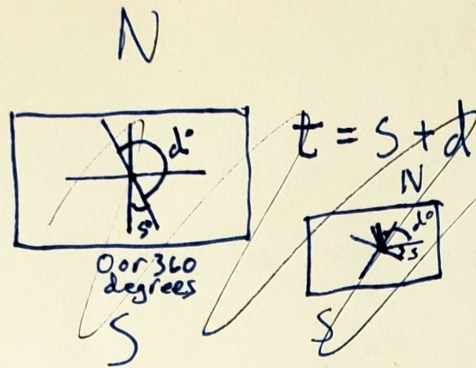 N
d°
t = s + d
s°
N
d°
s
0 or 360
degrees
S
S